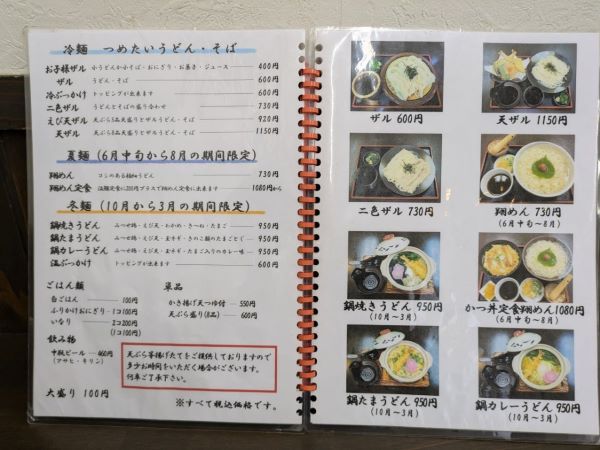 冷麺 つめたいうどん・そば
お子様ザル 小うどんか小そば・おにぎり・お菓子・ジュース 400円
ザル うどん・そば 600円
冷ぶっかけ トッピングが出来ます 600円
二色ザル うどんとそばの盛り合わせ 730円
えび天ザル 天ぷら5品天盛りとザルうどん・そば 920円
天ザル 天ぷら8品天盛りとザルうどん・そば 1150円
夏麺 (6月中旬から8月の期間限定)
翔めん コシのある極細うどん 730円
翔めん定食 1080円から
冬麺 (10月から3月の期間限定)
鍋焼きうどん 950円
鍋たまうどん 950円
鍋カレーうどん 950円
温ぶっかけ トッピングが出来ます 600円
ごはん類
白ごはん 100円
ふりかけおにぎり・1コ100円
いなり 2コ200円
(1コ100円)
飲み物
中瓶ビール 460円
(アサヒ・キリン)
大盛り 100円
単品
かき揚げ天つゆ付 550円
天ぷら盛り(8品) 600円
天ぷら等揚げたてをご提供しておりますので
多少お時間をいただく場合がございます。
何卒ご了承下さい。
※すべて税込価格です。
ザル 600円
天ザル 1150円
二色ザル 730円
翔めん 730円
(6月中旬~8月)
鍋焼きうどん 950円
(10月~3月)
かつ丼定食翔めん1080円
(6月中旬~8月)
鍋たまうどん 950円
(10月~3月)
鍋カレーうどん 950円
(10月~3月)